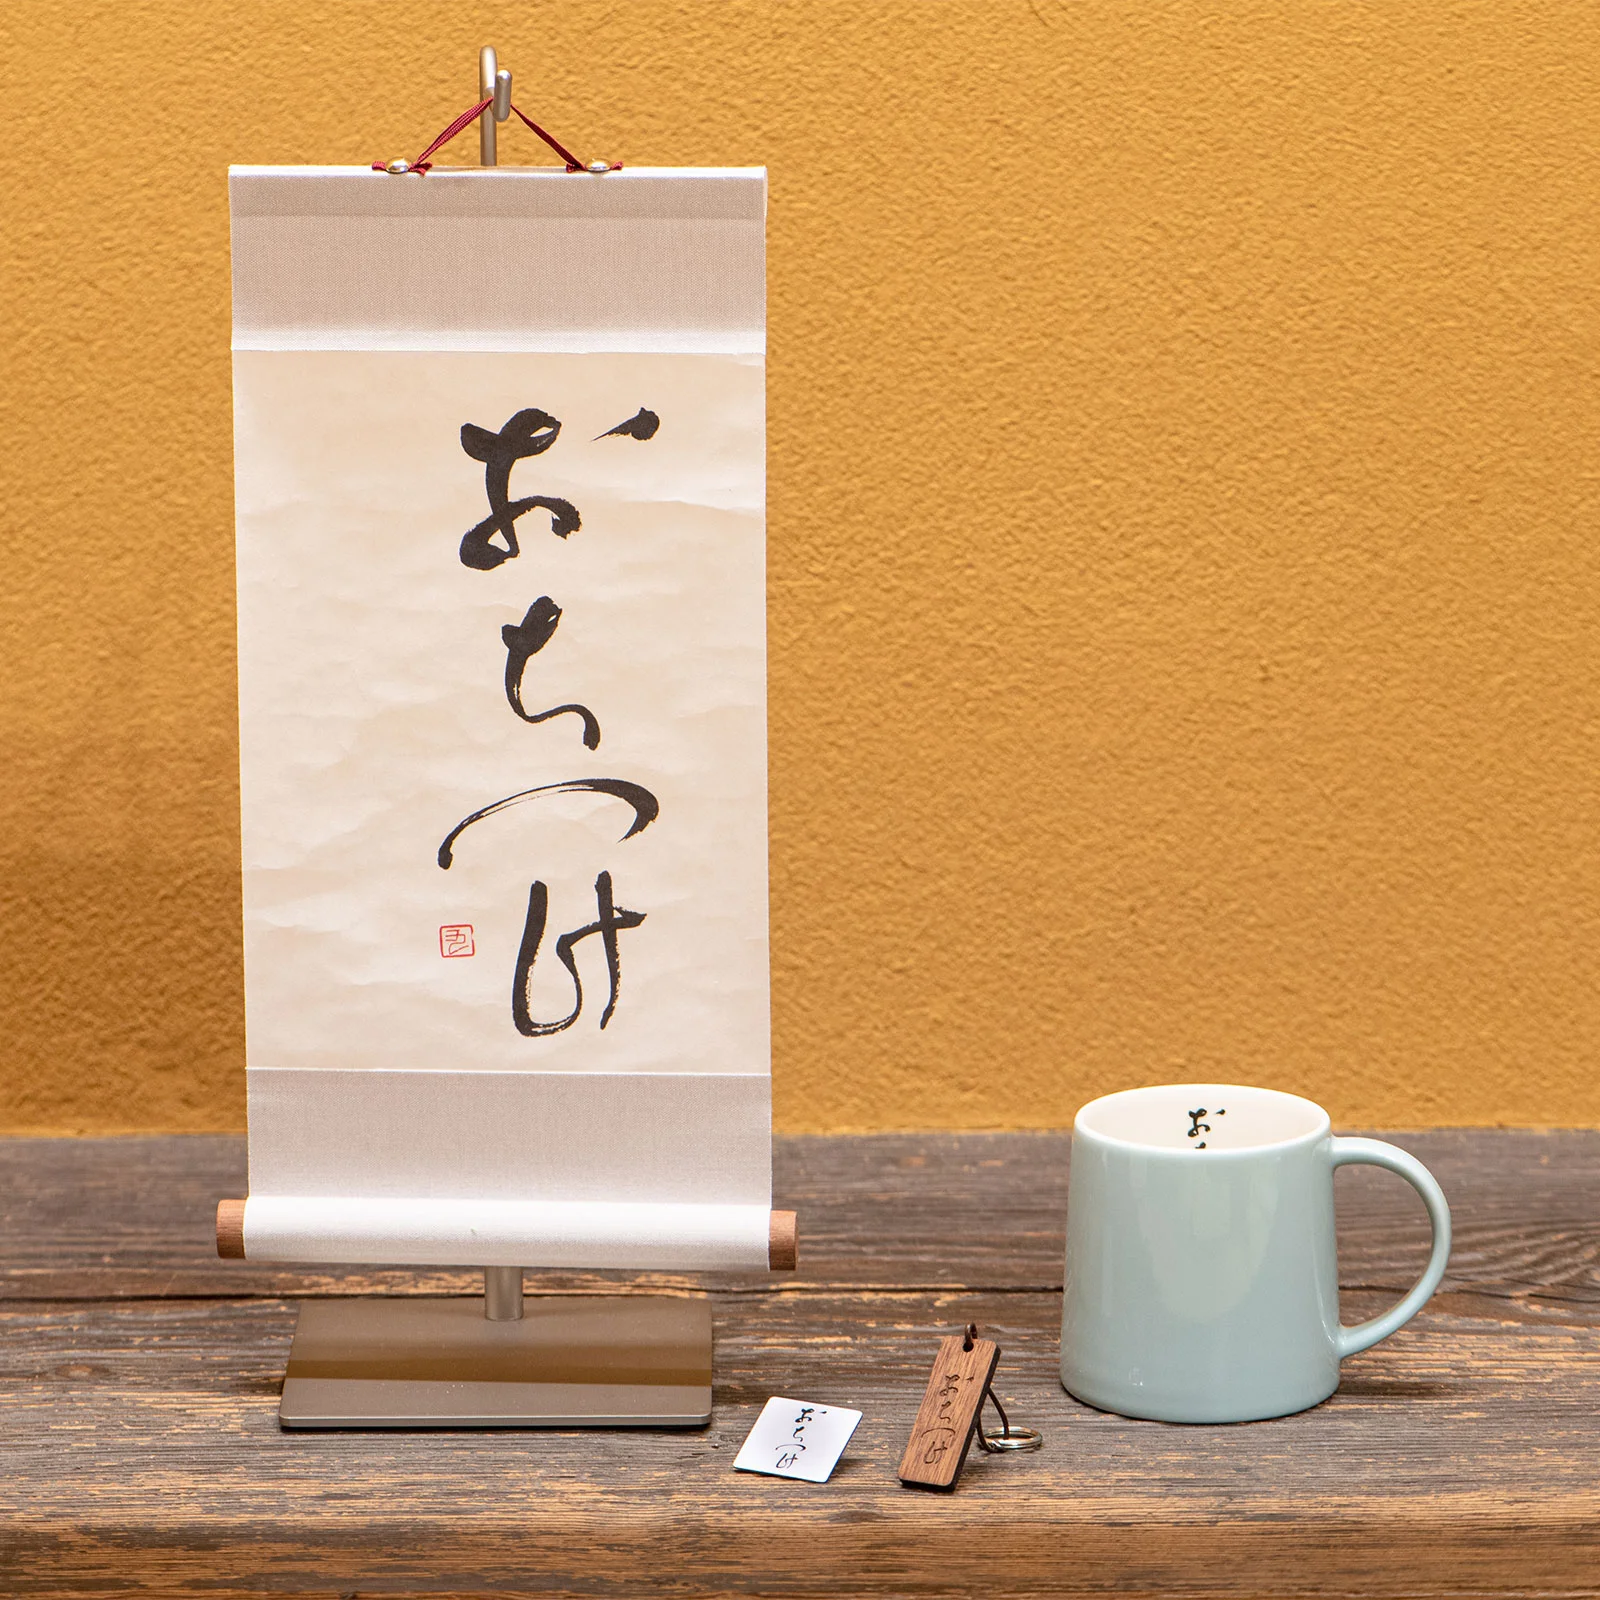 おちつけ
おちつけ
おちつけ
お